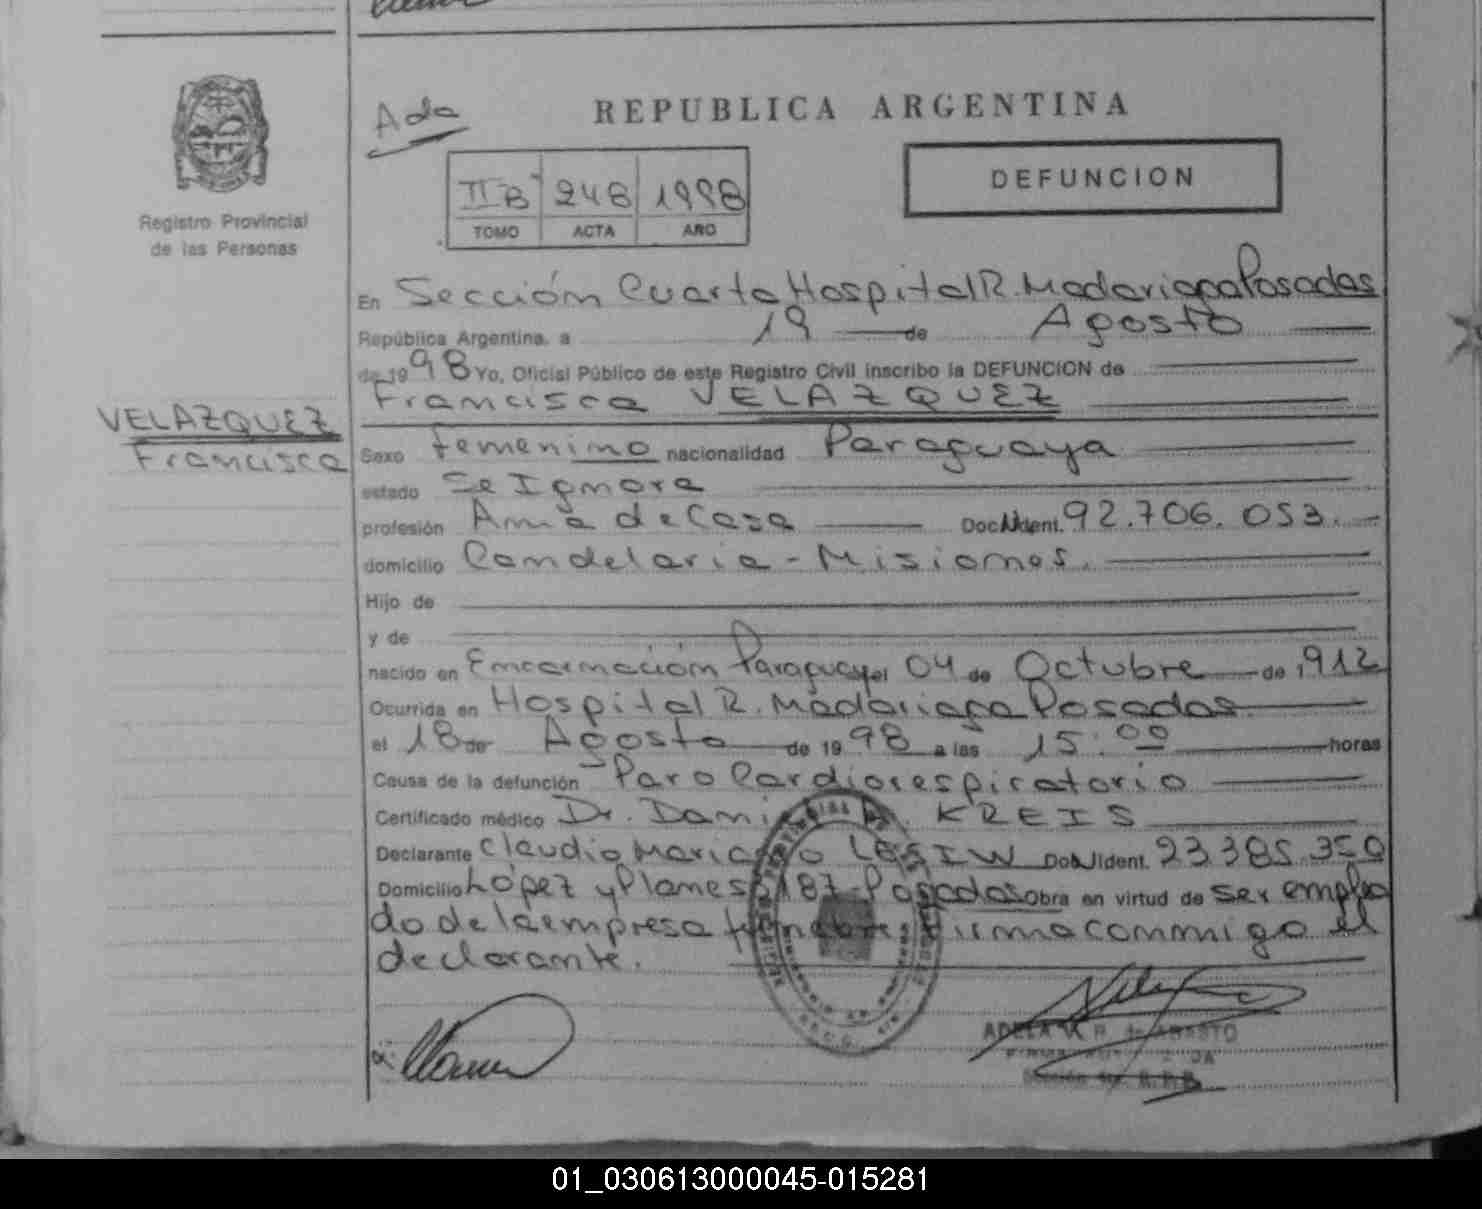 Ada
REPUBLICA ARGENTINA
DEFUNCION
IIB 248 1998
TOMO ACTA AÑO
Registro Provincial
de las Personas
En Sección Cuarta Hospital R. Madariaga Posadas
República Argentina, a 19 de Agosto
de 1998 Yo, Oficial Público de este Registro Civil inscribo la DEFUNCION de
Francisca VELAZQUEZ
VELAZQUEZ
Francisca
Sexo femenino nacionalidad Paraguaya
estado Se Ignora
profesión Ama de Casa Doc. N. Ident. 92.706.053.
domicilio Candelaria - Misiones.
Hijo de
y de
nacido en Encarnación Paraguay el 04 de Octubre de 1912
Ocurrida en Hospital R. Madariaga Posadas
el 18 de Agosto de 1998 a las 15:00 horas
Causa de la defunción Paro Cardiorespiratorio
Certificado médico Dr. KREIS
Declarante Claudio Mariano LESIW Doc. N. Ident. 23.385.350
Domicilio López y Planes 5187 - Posadas obra en virtud de ser emplea
do de la empresa funebre firma conmigo el
declarante.
ADELA
01_030613000045-015281